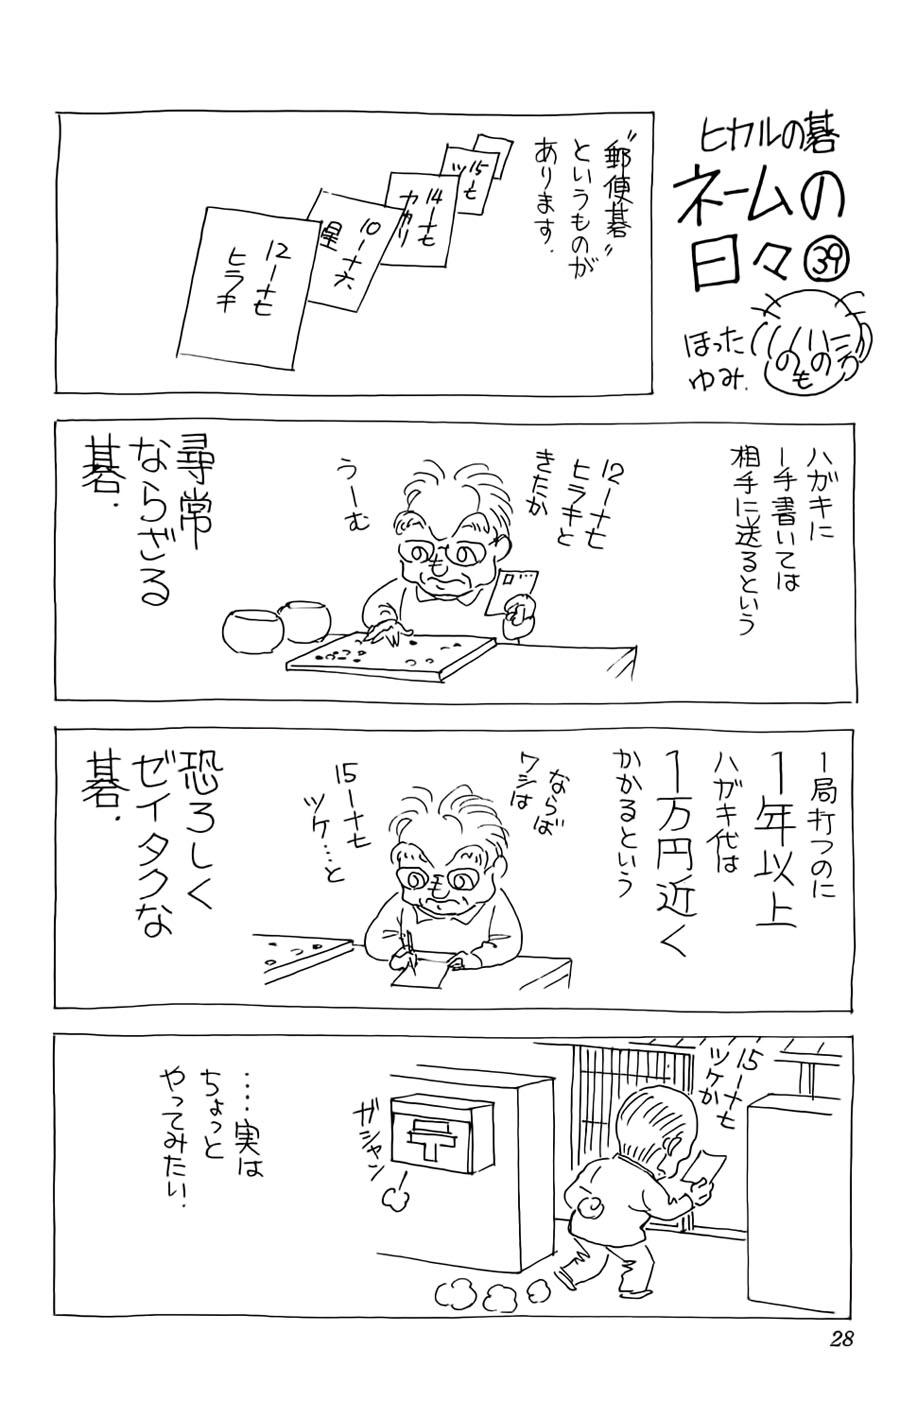 ヒカルの碁
ネームの
日々㊴
ほった
ゆみ.
"郵便碁"
というものが
あります.
15ー七
ツ
14ー十七
カカリ
10ー十六
星
12ー十七
ヒラキ
ハガキに
一手書いては
相手に送るという
12ー十七
ヒラキと
きたか
うーむ
尋常
ならざる
碁.
一局打つのに
1年以上
ハガキ代は
1万円近く
かかるという
ならば
ワシは
15ー十七
ツケ…と
恐ろしく
ゼイタクな
碁.
15ー十七
ツケか
ガシャン
〒
……実は
ちょっと
やってみたい.
28